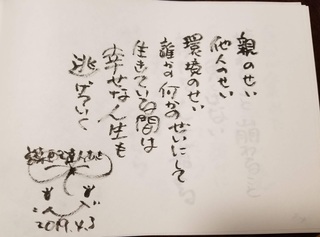 親のせい
他人のせい
環境のせい
誰かの何かのせいにして
生きている間は
幸せな人生も
逃げていく
笑
2019.4.3